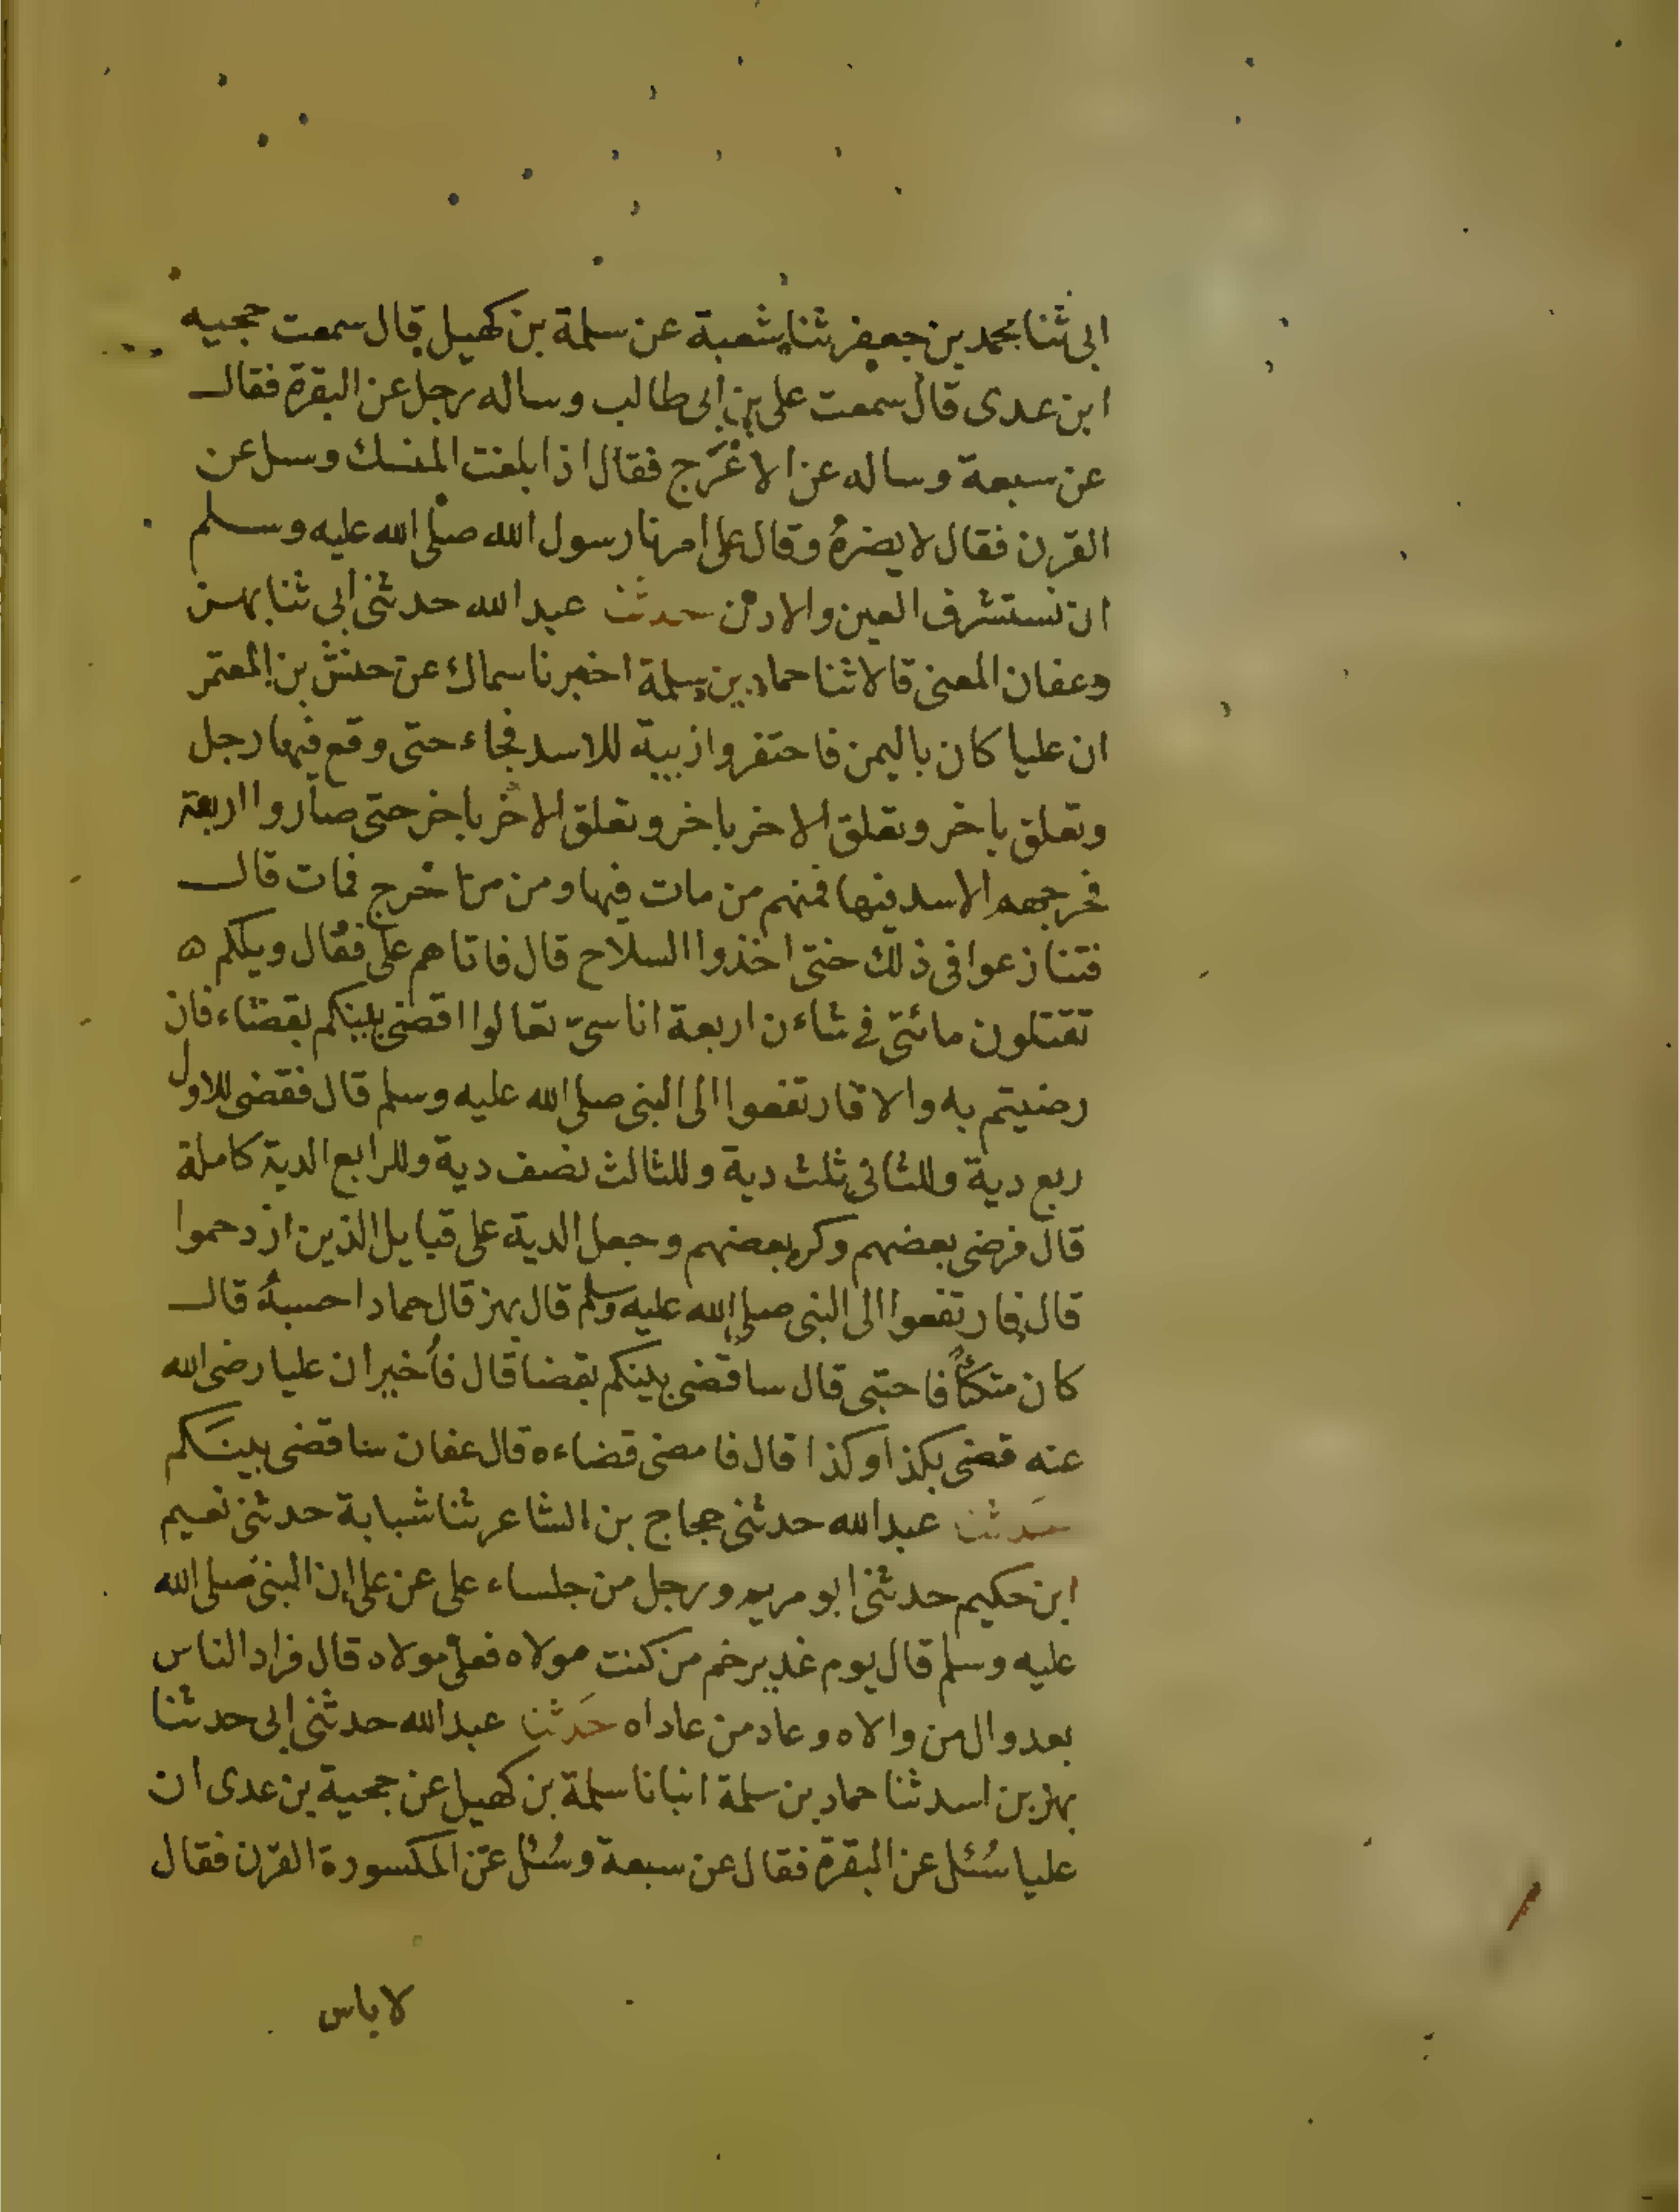 ابى ثنا محمد بن جعفر ثنا شعبة عن سلمة بن كهيل قال سمعت حجيه
ابن عدى قال سمعت على بن ابى طالب وساله رجل عن البقرة فقال
عن سبعة وساله عن الاعرج فقال اذا بلغت المنسك وسل عن
القرن فقال لا يضره وقال على امرنا رسول الله صلى الله عليه وسلم
ان نستشرف العين والاذن حدثنا عبد الله حدثنى ابى ثنا بهز
وعفان المعنى قالا ثنا حماد بن سلمة اخبرنا سماك عن حنش بن المعتمر
ان عليا كان باليمن فاحتفروا زبية للاسد فجاء حتى وقع فيها رجل
وتعلق باخر وتعلق الاخر باخر وتعلق الاخر باخر حتى صاروا اربعة
فجرحهم الاسد فيها فمنهم من مات فيها ومن من اخرج فمات قال
فتنازعوا فى ذلك حتى اخذوا السلاح قال فاتاهم على فقال ويلكم ه
تقتلون مائتى فى شاءن اربعة اناسى تعالوا اقضى بينكم بقضاء فان
رضيتم به والا فارتفعوا الى النبى صلى الله عليه وسلم قال فقضى للاول
ربع دية وللثانى ثلث دية وللثالث نصف دية وللرابع الدية كاملة
قال فرضى بعضهم وكره بعضهم وجعل الدية على قبايل الذين ازدحموا
قال فارتفعوا الى النبى صلى الله عليه وسلم قال بهز قال حماد احسبه قال
كان متكئاً فاحتبى قال ساقضى بينكم بقضا قال فأخبر ان عليا رضى الله
عنه قضى بكذا وكذا قال فامضى قضاءه قال عفان ساقضى بينكم
حدثنا عبد الله حدثنى حجاج بن الشاعر ثنا شبابة حدثنى نعيم
ابن حكيم حدثنى ابو مريم ورجل من جلساء على عن على ان النبى صلى الله
عليه وسلم قال يوم غدير خم من كنت مولاه فعلى مولاه قال فزاد الناس
بعد وال من والاه وعاد من عاداه حدثنا عبد الله حدثنى ابى حدثنا
بهز بن اسد ثنا حماد بن سلمة انبانا سلمة بن كهيل عن حجية بن عدى ان
عليا سُئل عن البقرة فقال عن سبعة وسُئل عن المكسورة القرن فقال
لا باس